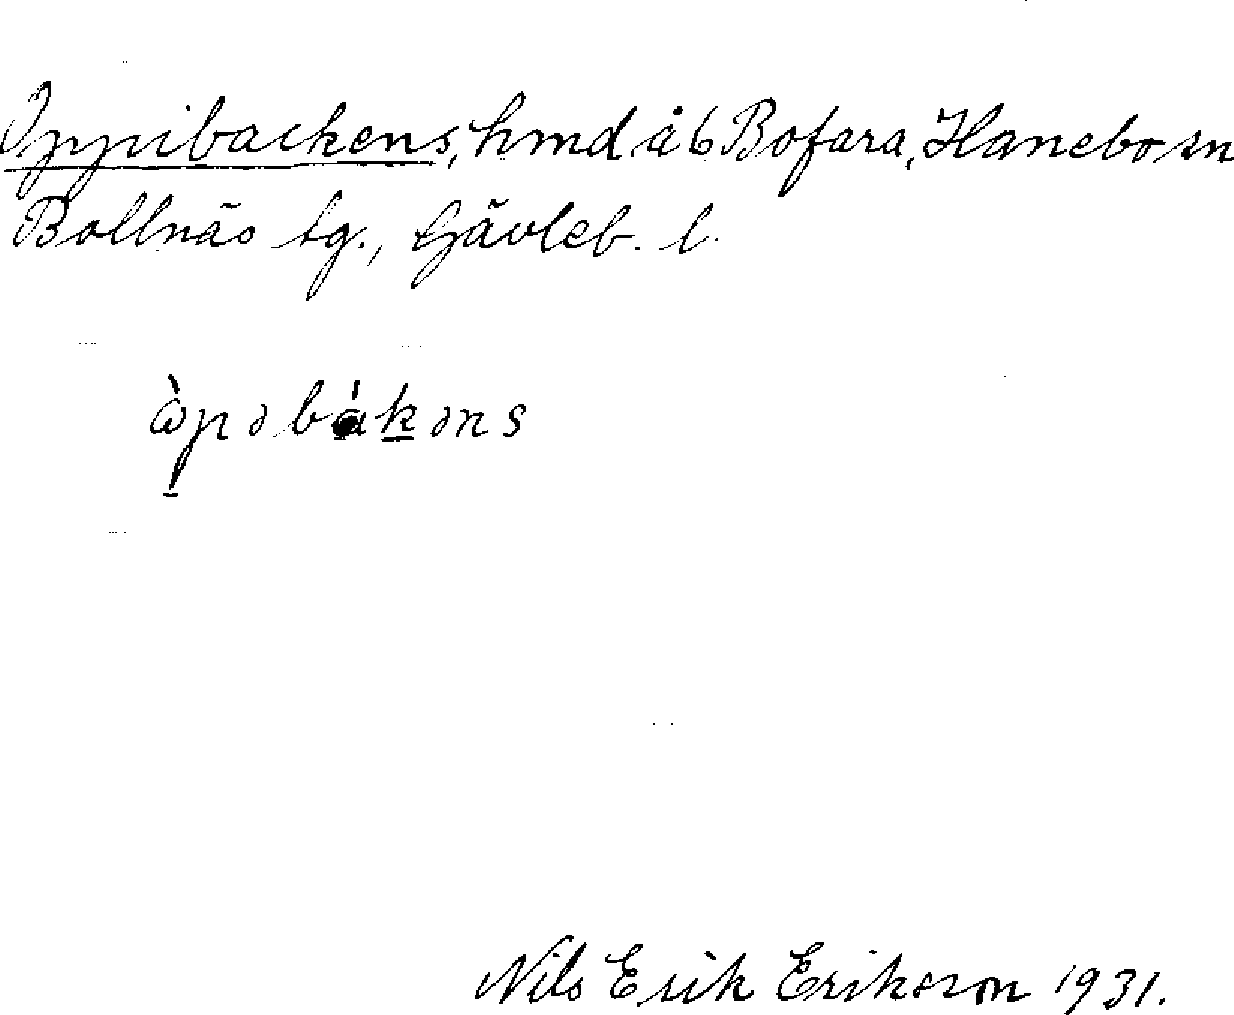 Oppibackens, hmd å 6 Bofara, Hanebo sn
Bollnäs tg., Gävleb. l.
òpəbákəns
Nils Erik Erikson 1931.